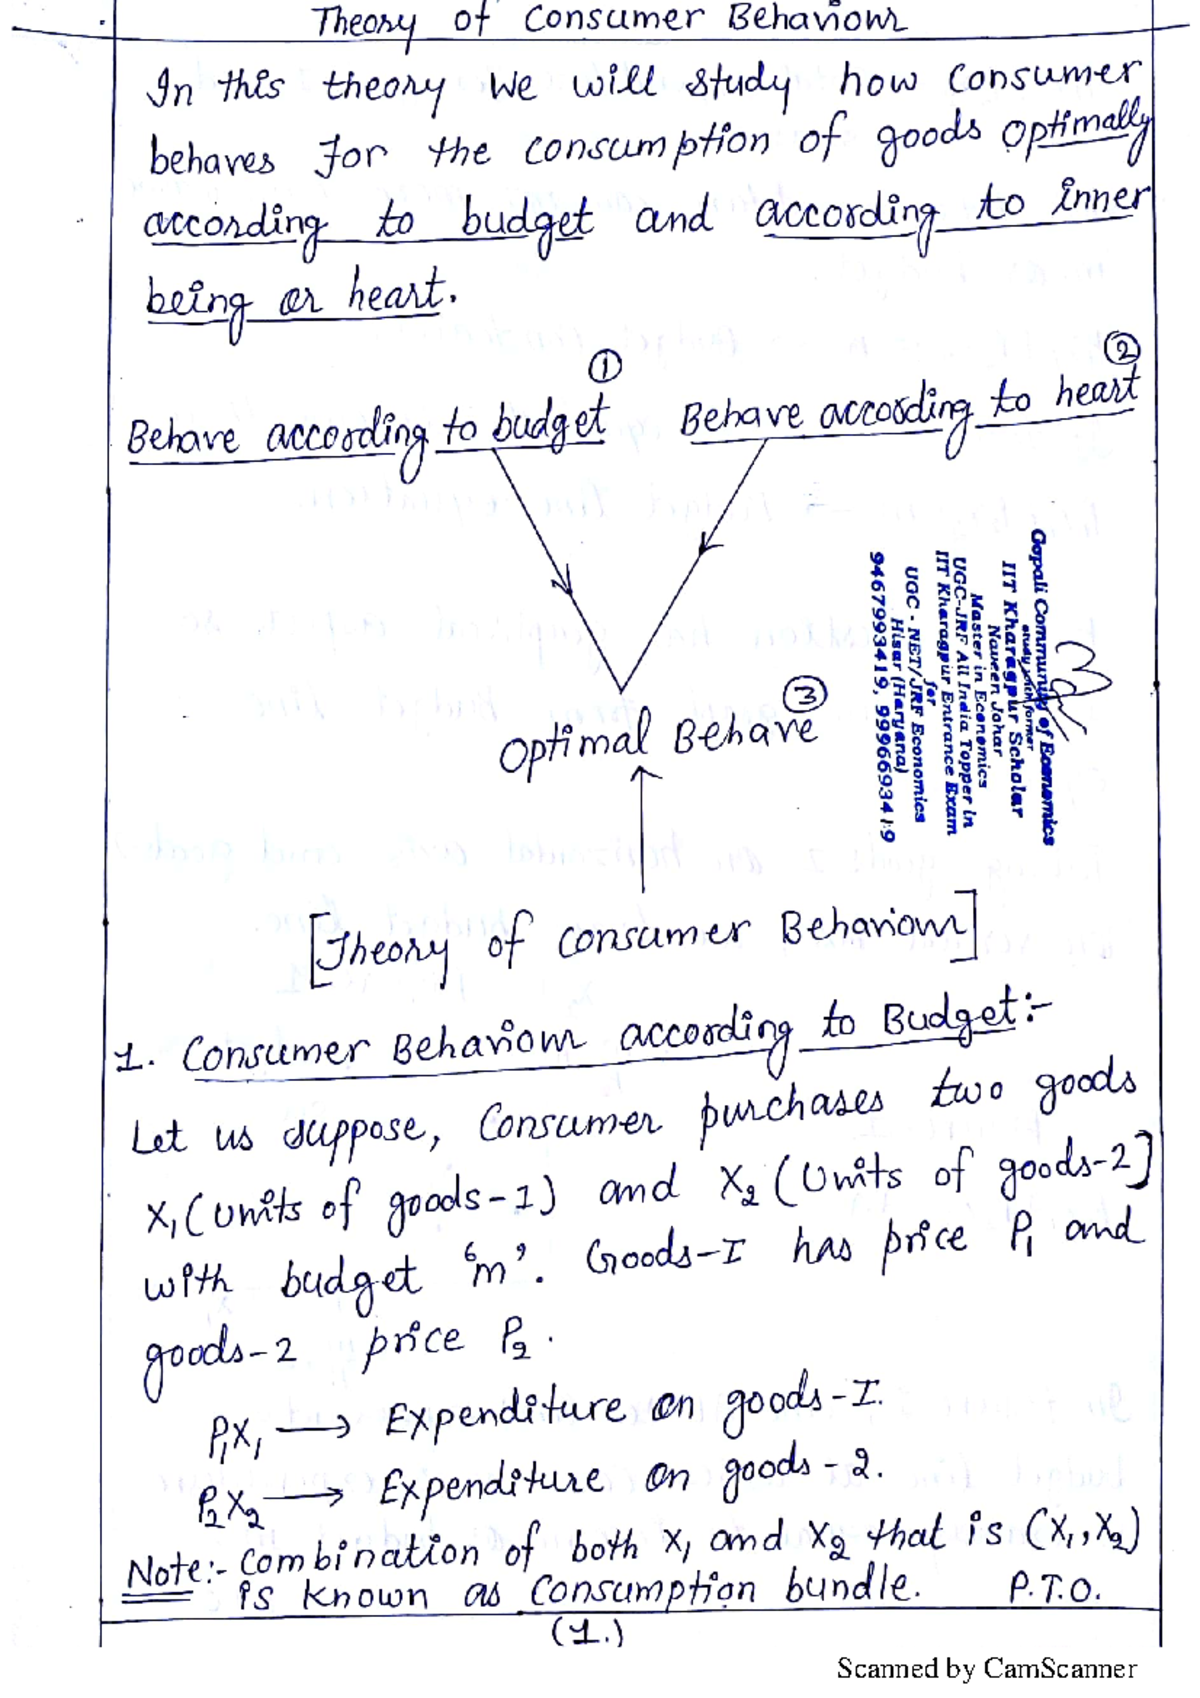 Theory of Consumer Behaviour
In this theory we will study how consumer
behaves for the consumption of goods optimally
according to budget and according to inner
being or heart.
①
②
Behave according to budget
Behave according to heart
③
Optimal Behave
Gopali Community of Economics
study with former
IIT Kharagpur Scholar
Naveen Johar
Master in Economics
UGC-JRF All India Topper in
IIT Kharagpur Entrance Exam
for
UGC - NET/JRF Economics
Hisar (Haryana)
9467993419, 9996693419
[Theory of consumer Behaviour]
1. Consumer Behaviour according to Budget:-
Let us suppose, Consumer purchases two goods
X₁ (units of goods-1) and X₂ (units of goods-2]
with budget 'm'. Goods-I has price P₁ and
goods-2 price P₂.
P₁X₁ → Expenditure on goods-I.
P₂X₂ → Expenditure on goods-2.
Note:- Combination of both X₁ and X₂ that is (X₁, X₂)
is known as Consumption bundle. P.T.O.
(1.)
Scanned by CamScanner